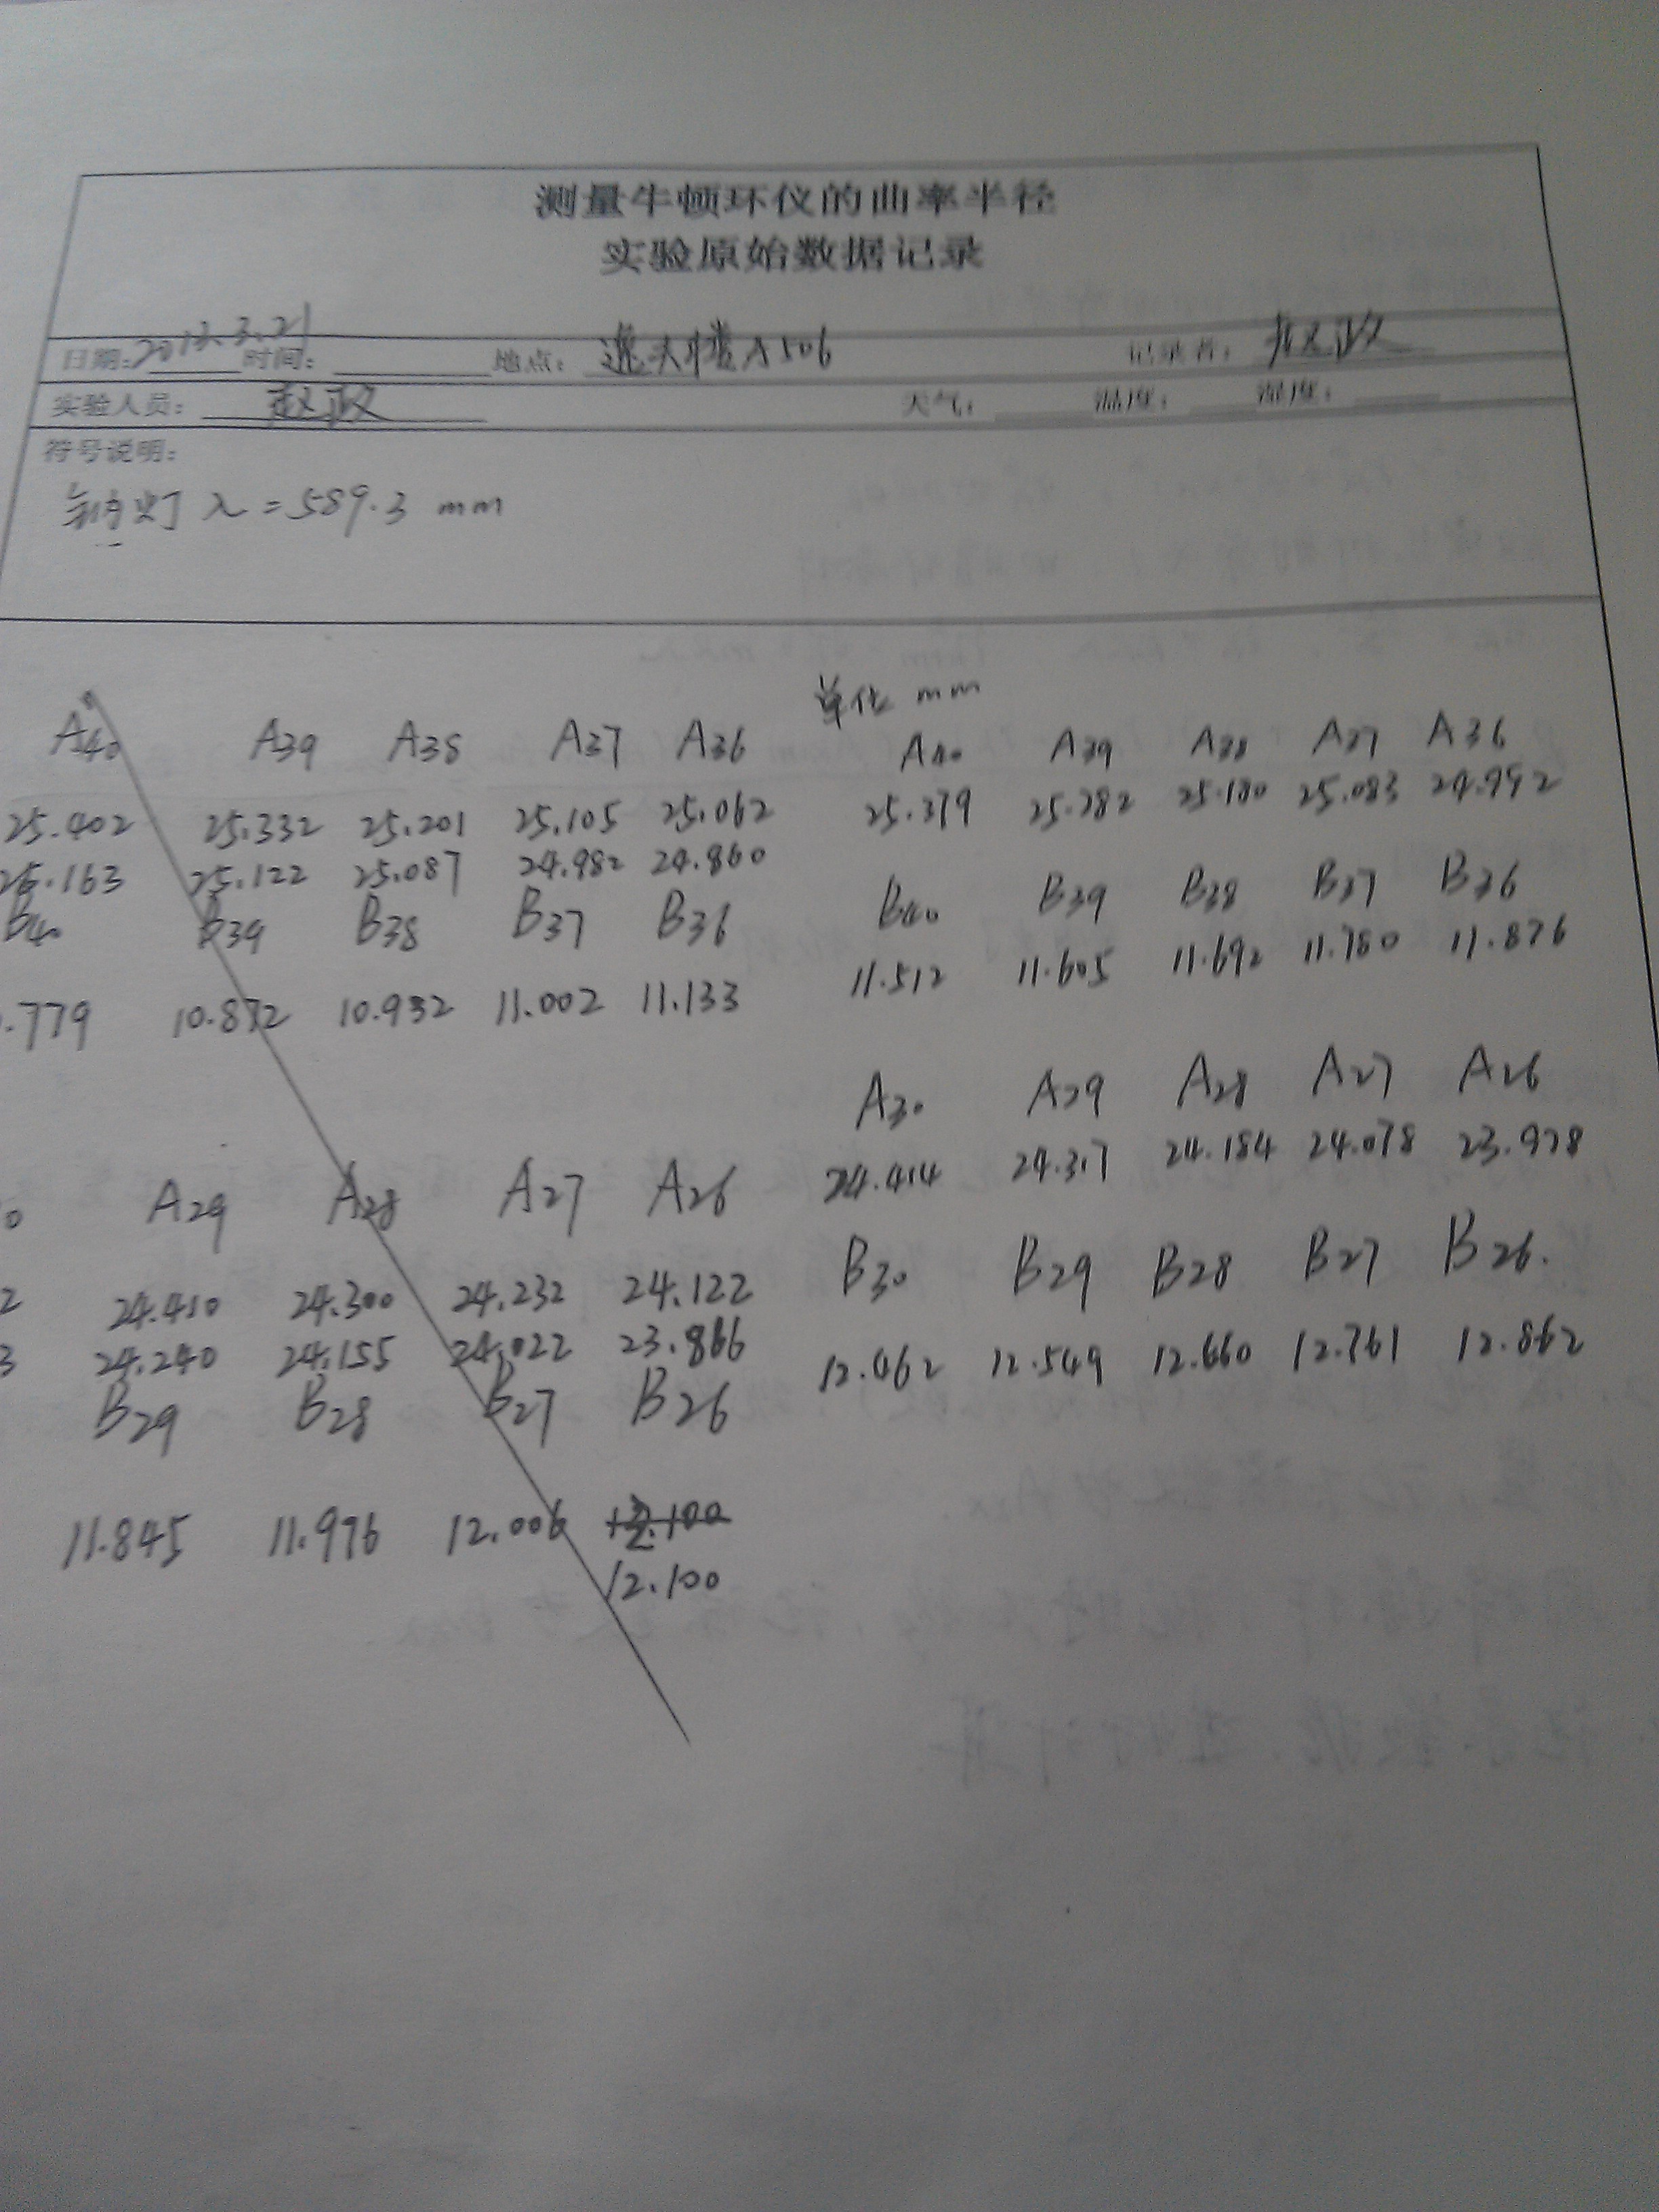 测量牛顿环仪的曲率半径
实验原始数据记录
日期: 2013.3.21 时间: 地点: 逸夫楼A506 记录者: 赵政
实验人员: 赵政 天气: 温度: 湿度:
符号说明:
钠灯 λ=589.3 mm
单位 mm
A40 A39 A38 A37 A36
25.402 25.332 25.201 25.105 25.062
25.163 25.122 25.087 24.982 24.860
B40 B39 B38 B37 B36
.779 10.872 10.932 11.002 11.133
A29 A28 A27 A26
24.410 24.300 24.232 24.122
24.240 24.155 24.022 23.866
B29 B28 B27 B26
11.845 11.976 12.006 12.100
12.100
A40 A39 A38 A37 A36
25.379 25.282 25.180 25.083 24.992
B40 B39 B38 B37 B36
11.512 11.605 11.692 11.780 11.876
A30 A29 A28 A27 A26
24.414 24.317 24.184 24.078 23.978
B30 B29 B28 B27 B26.
12.462 12.549 12.660 12.761 12.862